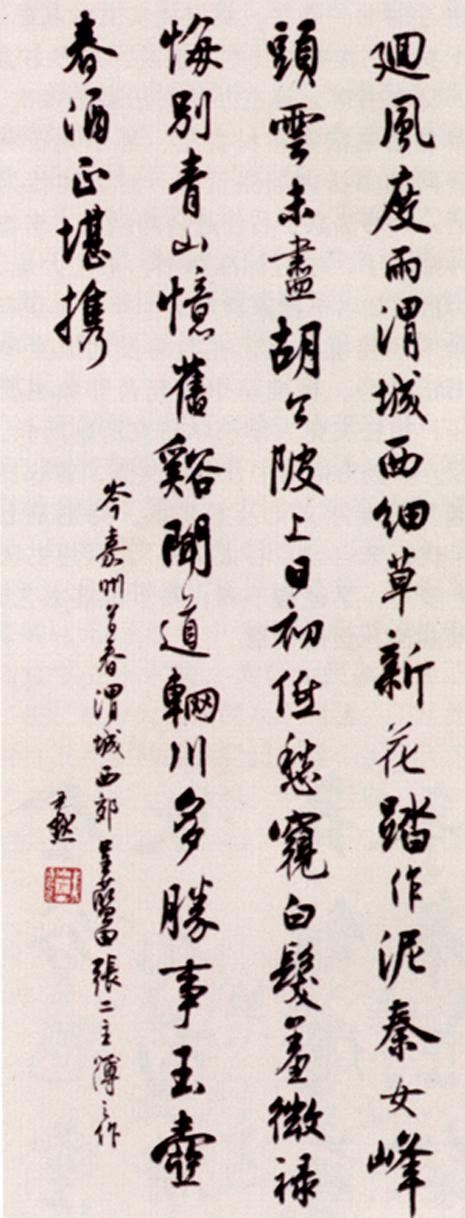 迴風度雨渭城西細草新花踏作泥秦女峰
頭雲未盡胡公陂上日初低愁窺白髮羞微祿
悔別青山憶舊谿聞道輞川多勝事玉壺
春酒正堪携
岑嘉州首春渭城西郊呈藍田張二主簿之作
尹默